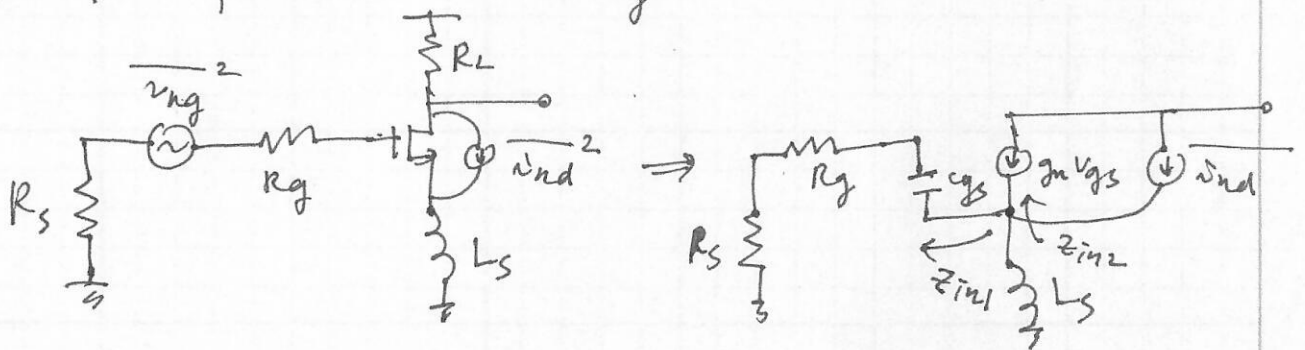 R_L
\overline{v_{ng}}^2
R_g
\overline{i_{nd}}^2
R_s
L_s
⇒
R_g
c_{gs}
g_m v_{gs}
\overline{i_{nd}}
R_s
z_{in1}
z_{in2}
L_s